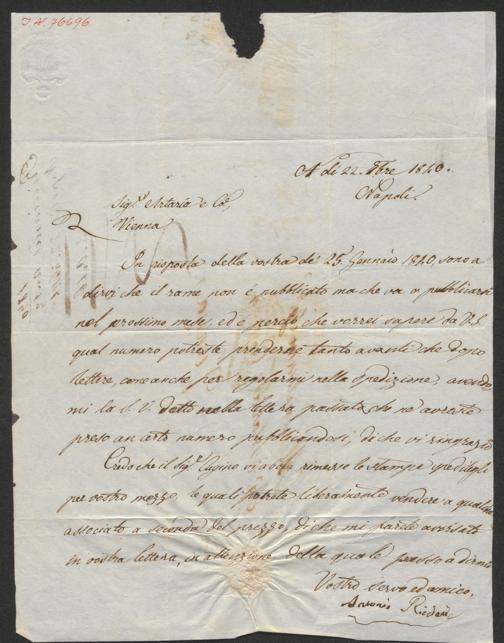 I.N. 76696
A dì 22. Xbre 1840.
Napoli.
Sig.ri Artaria e Co.
Vienna.
In risposta della vostra de' 25 Gennaio 1840, sono a
dirvi che il rame non è pubblicato ma che va a pubblicarsi
nel prossimo mese, ed è perciò che vorrei sapere da V.S.
qual numero potreste prenderne tanto avante che dopo
lettere, come anche per regolarmi nella spedizione, avendo
mi la S.V. detto nella lettera passata, che ne avreste
preso un certo numero pubblicandosi, di che vi ringrazio
Credo che il Sig.r vi abbia rimesso le stampe speditegli
per vostro mezzo, le quali potrete liberamente vendere a qualche
associato a seconda del prezzo, di che mi farete avvisato
in vostra lettera, in attenzione della quale passo a dirmi
Vostro servo ed amico.